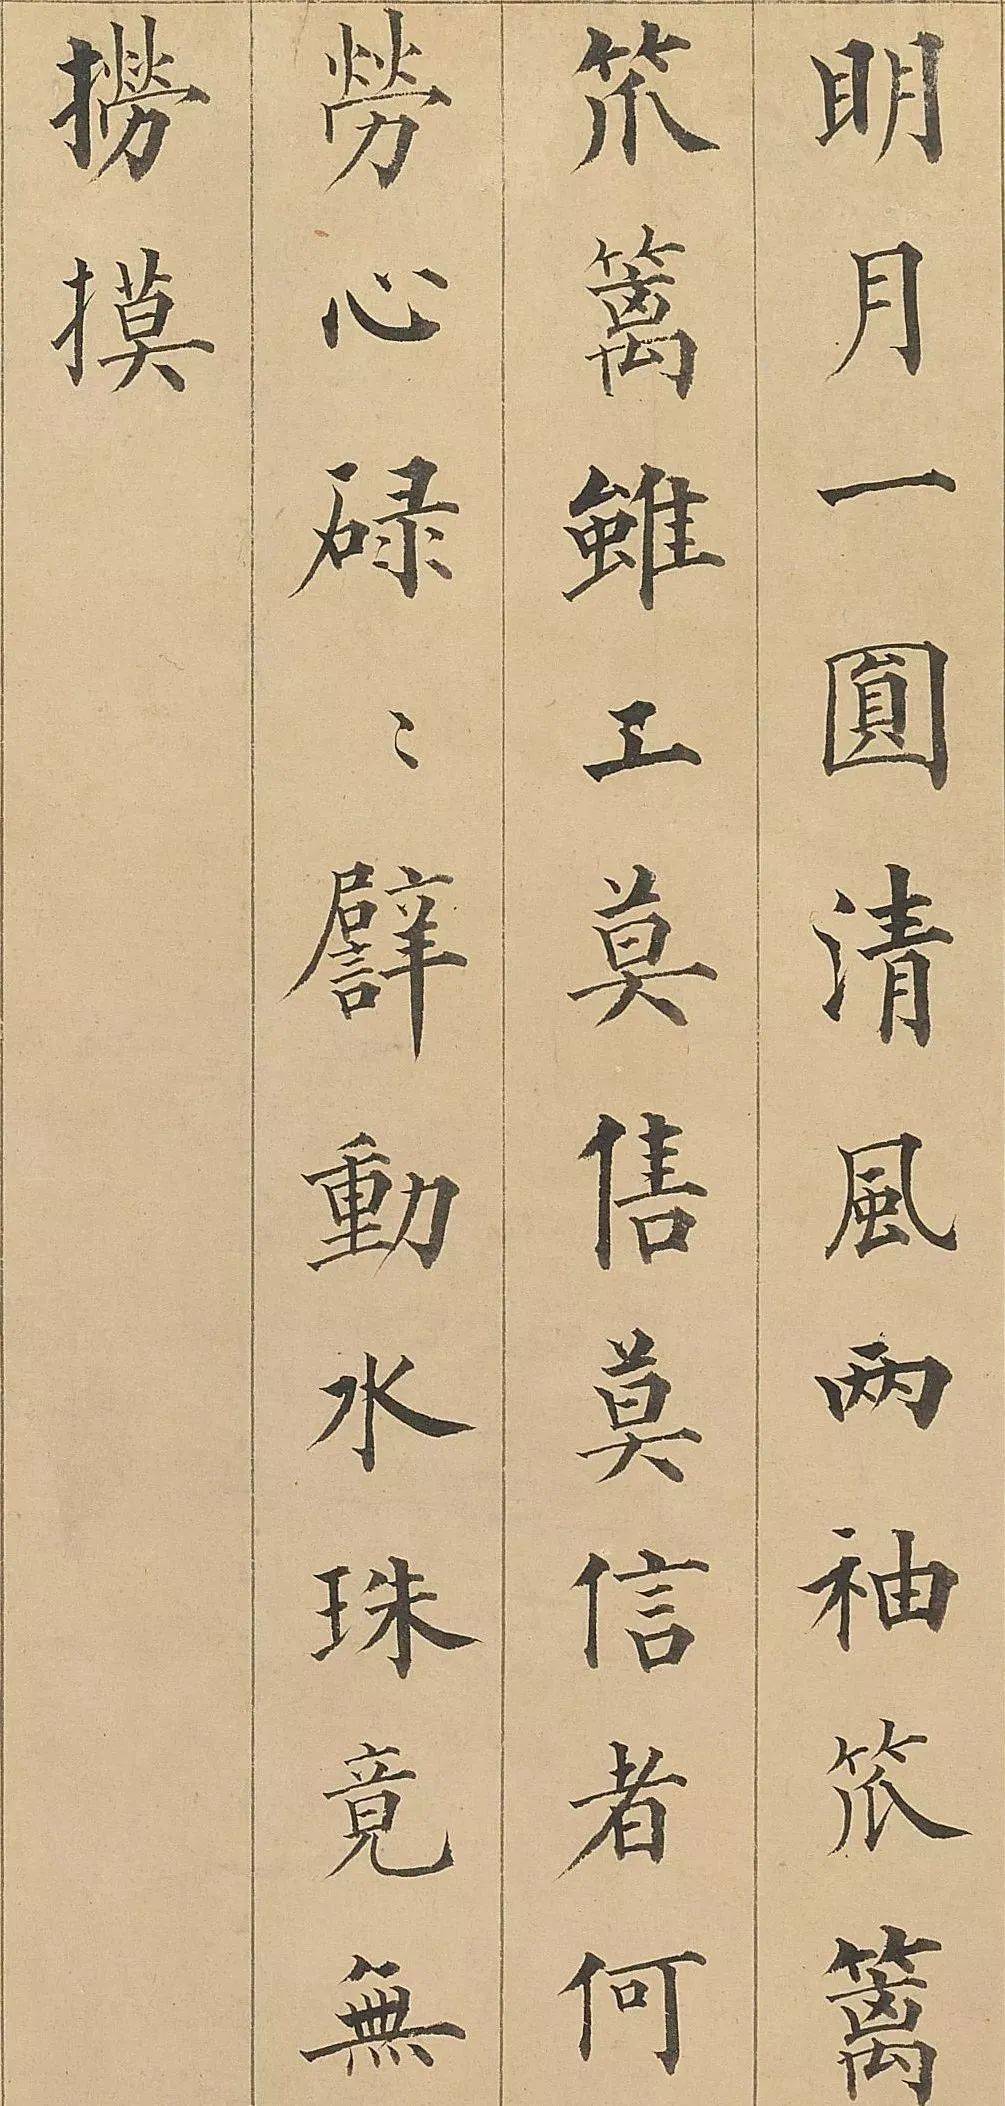 明月一圓清風兩袖笊籬
笊籬雖工莫售莫信者何
勞心碌〻譬動水珠竟無
撈摸